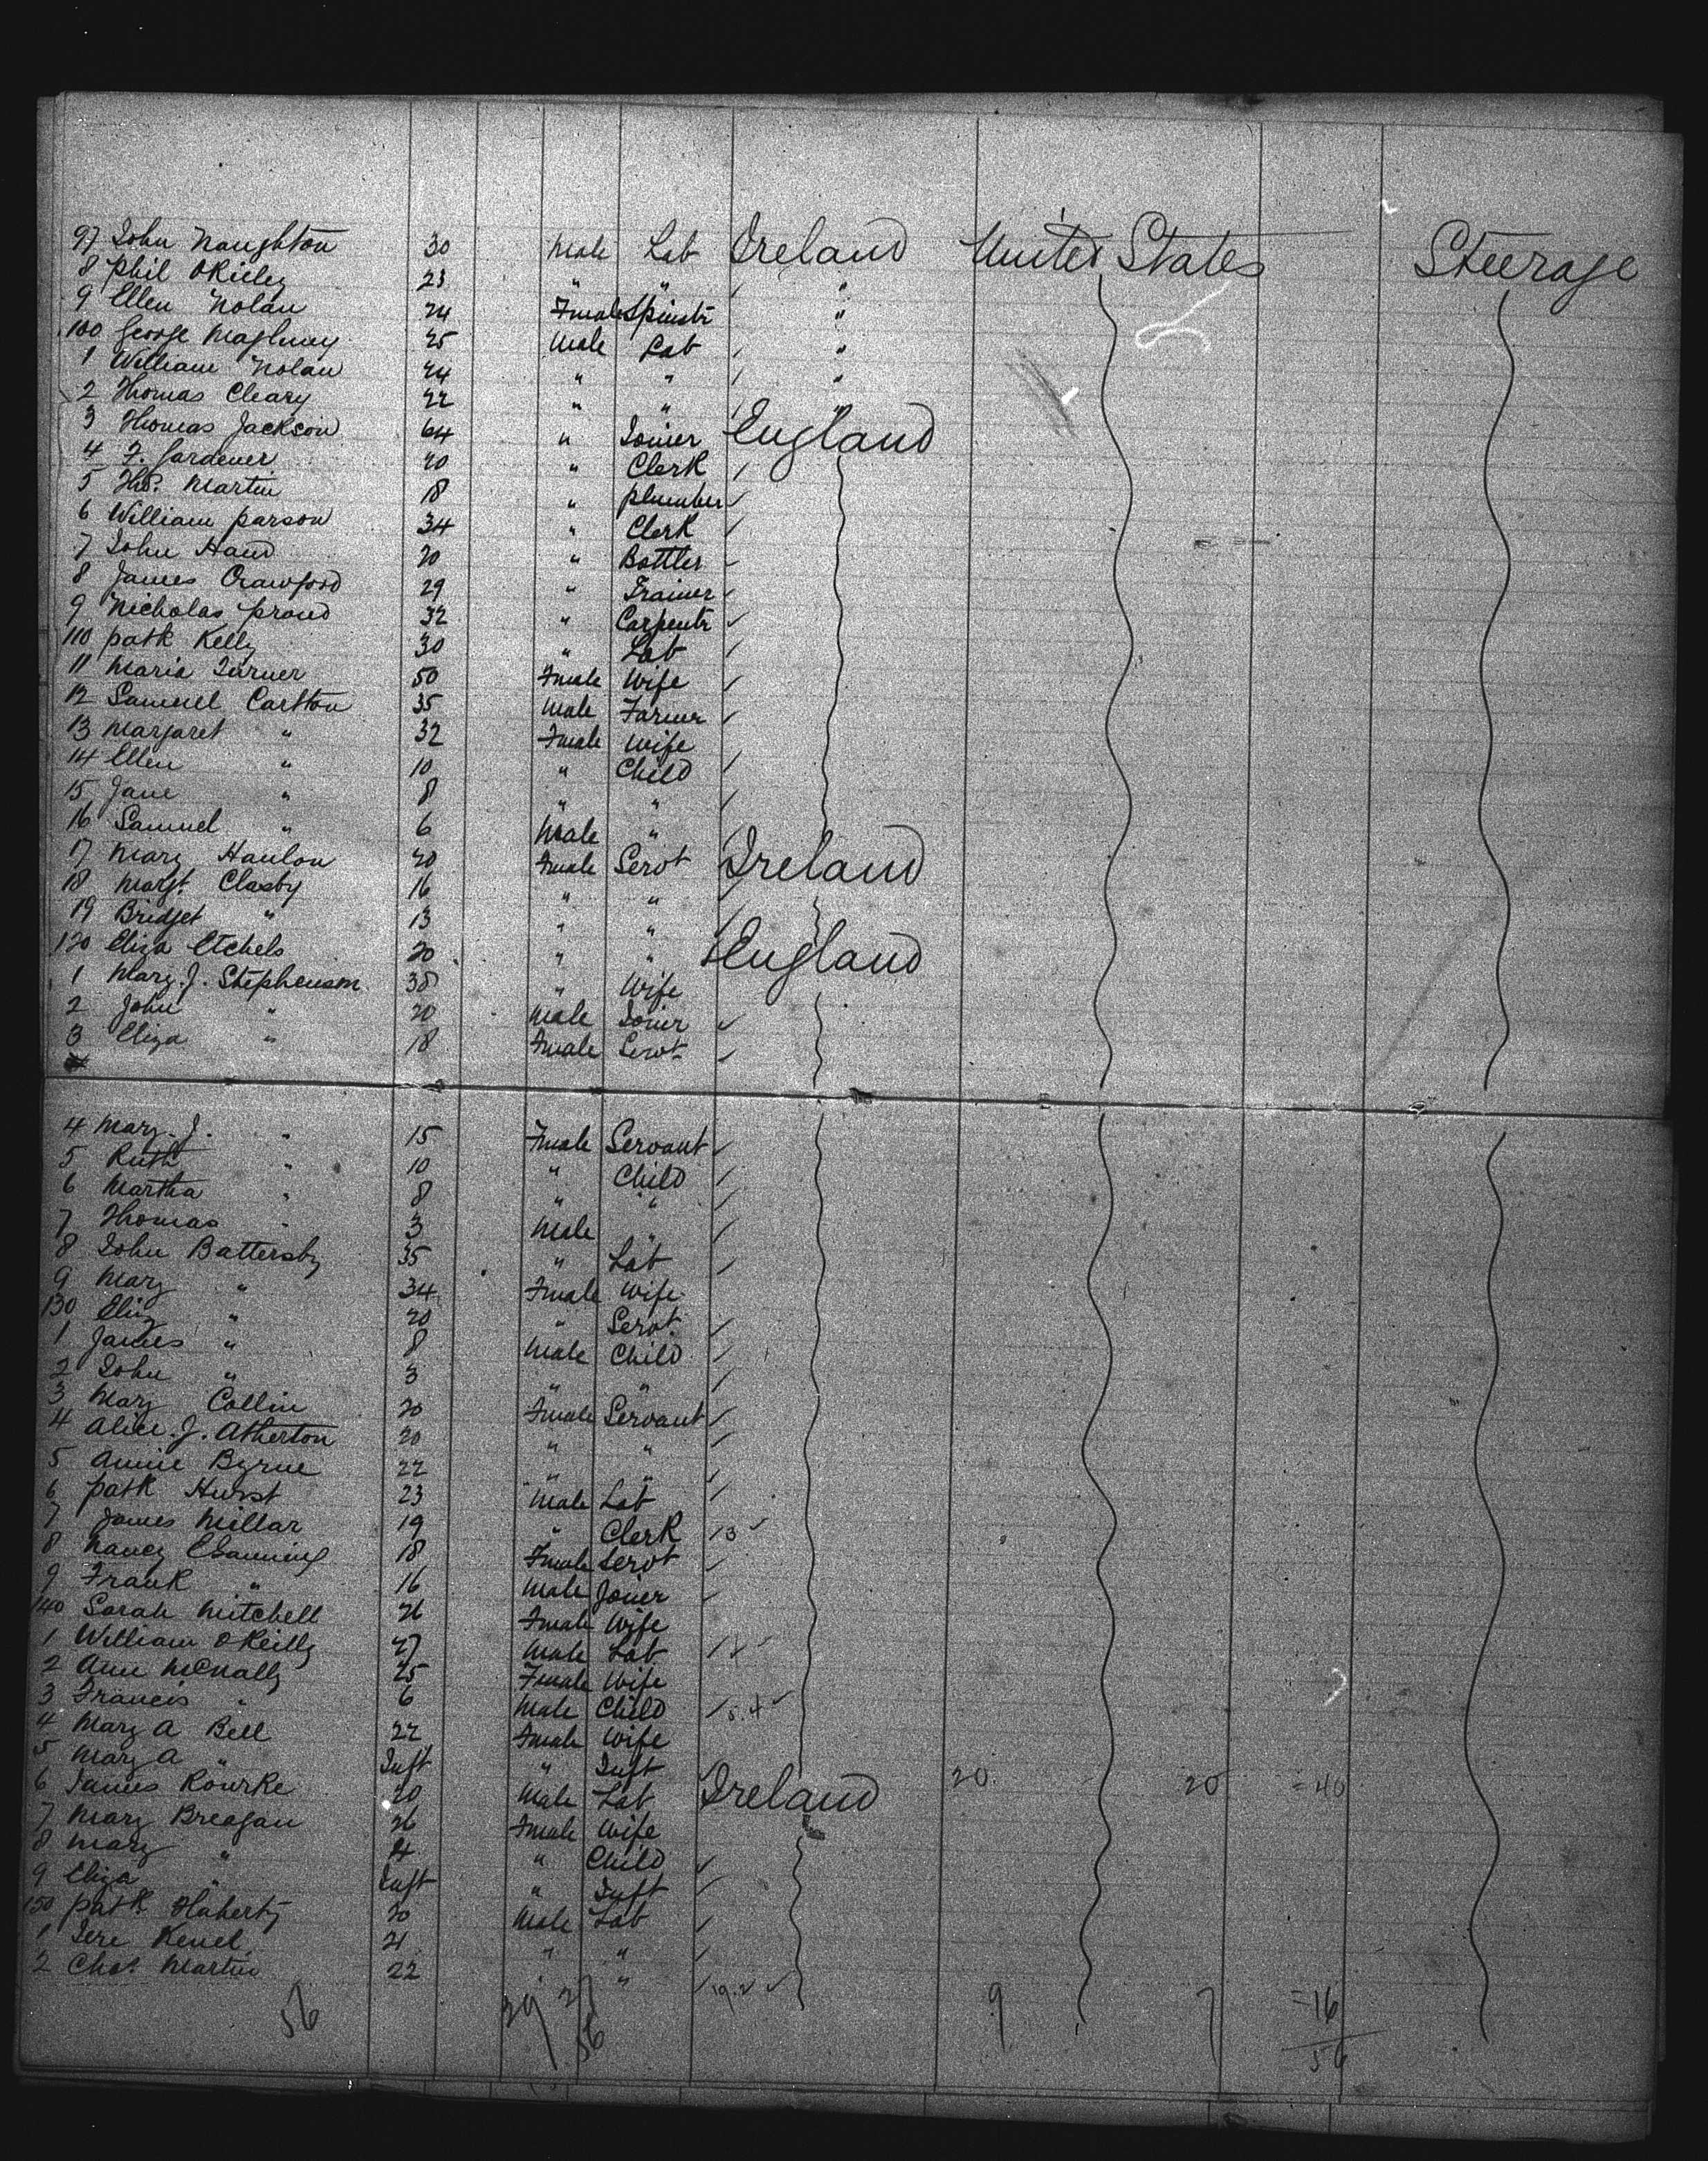 97 John Naughton 30 Male Lab Ireland United States Steerage
8 Phil ORieley 23 " " "
9 Ellen Nolan 24 Fmale Spinstr "
100 George 25 Male Lab "
1 William Nolan 24 " " "
2 Thomas Cleary 22 " " "
3 Thomas Jackson 64 " Joiner England
4 F. Gardener 20 " Clerk
5 Thos. Martin 18 " Plumber
6 William Parson 34 " Clerk
7 John Hand 20 " Bottler
8 James Crawford 29 " Frainer
9 Nicholas Proud 32 " Carpentr
110 Patk Kelly 30 " Lab
11 Maria Turner 50 Fmale Wife
12 Samuel Carlton 35 Male Farmer
13 Margaret " 32 Fmale Wife
14 Ellen " 10 " Child
15 Jane " 8 " "
16 Samuel " 6 Male "
17 Mary Hanlon 20 Fmale Servt Ireland
18 Margt. Clasby 16 " "
19 Bridget " 13 " "
120 Eliza Etchels 20 " " England
1 Mary. J. Stephenson 38 " Wife
2 John " 20 Male Joiner
3 Eliza " 18 Fmale Servt
4 Mary. J. " 15 Fmale Servant
5 Ruth " 10 " Child
6 Martha " 8 " "
7 Thomas " 3 Male "
8 John Battersby 35 " Lab
9 Mary " 34 Fmale Wife
130 Eliz " 20 " Servt.
1 James " 8 Male Child
2 John " 3 " "
3 Mary Collin 20 Fmale Servant
4 Alice. J. Atherton 20 " "
5 Annie Byrne 22 " "
6 Patk Hurst 23 Male Lab
7 James Millar 19 " Clerk 13
8 Nancy Channing 18 Fmale Servt
9 Frank " 16 Male Joiner
140 Sarah Mitchell 26 Fmale Wife
1 William OReilly 27 Male Lab
2 Ann McNally 25 Fmale Wife
3 Francis " 6 Male Child
4 Mary A Bell 22 Fmale Wife
5 Mary A " Inft " Inft
6 James Rourke 20 Male Lab Ireland 20 20 = 40
7 Mary Breagan 26 Fmale Wife
8 Mary " 4 " Child
9 Eliza " Inft " Inft
150 Patk Flaherty 20 Male Lab
1 Jere Kenel 21 " "
2 Chas. Martin 22 " " 19.2
56 29 27 9 7 = 16
56 56